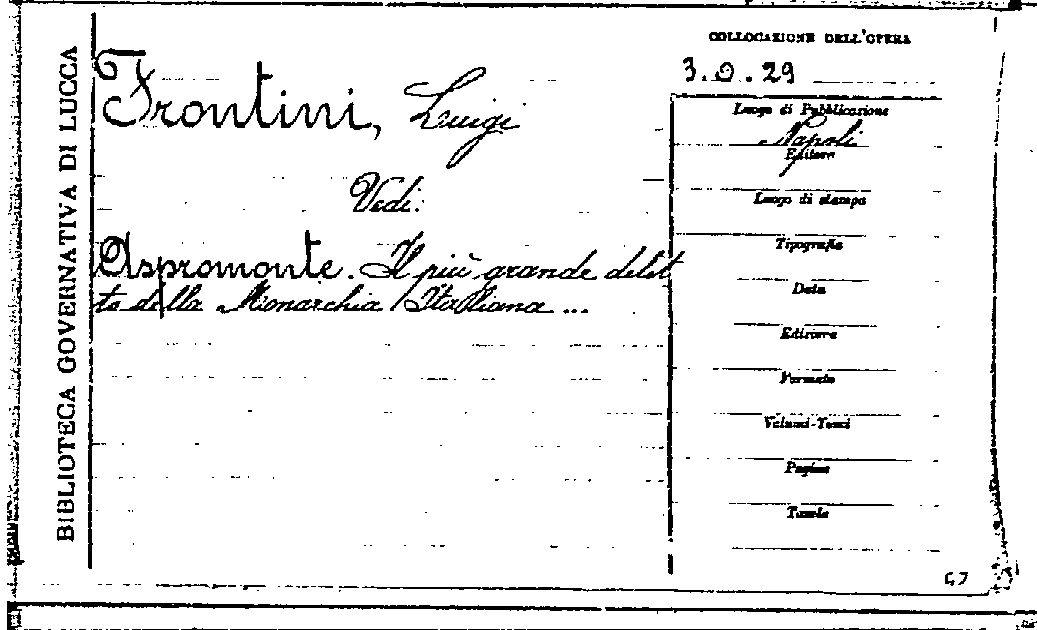 BIBLIOTECA GOVERNATIVA DI LUCCA
Frontini, Luigi
Vedi:
Aspromonte. Il più grande delit
to della Monarchia Italiana ...
COLLOCAZIONE DELL'OPERA
3.0.29
Luogo di Pubblicazione
Napoli
Editore
Luogo di stampa
Tipografia
Data
Edizione
Formato
Volumi-Tomi
Pagine
Tavole